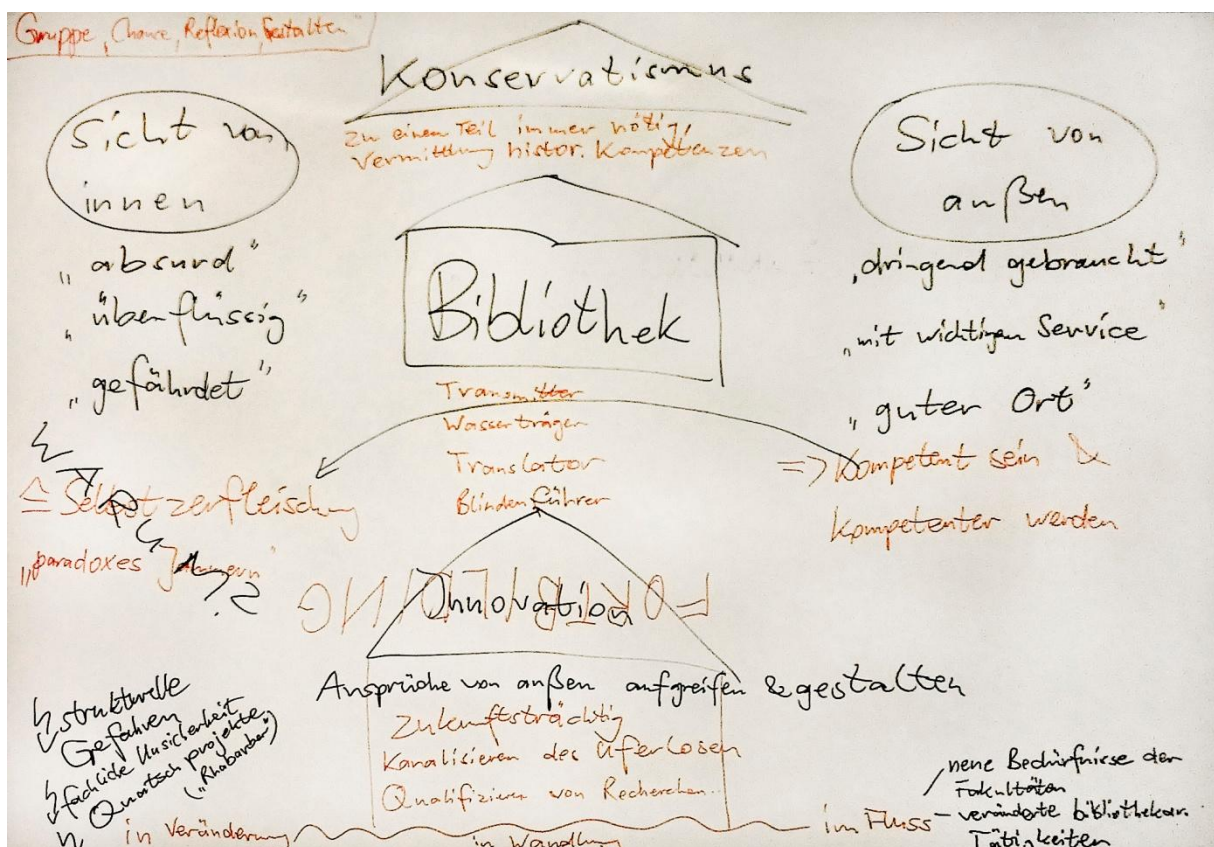 Gruppe, Chance, Reflexion, Gestalten
Konservatismus
zu einem Teil immer nötig,
Vermittlung histor. Kompetenzen
Sicht von
innen
„absurd“
„überflüssig“
„gefährdet“
≙ Selbstzerfleischung
„paradoxes Jammern“
?
Bibliothek
Transmitter
Wasserträger
Translator
Blindenführer
Sicht von
außen
„dringend gebraucht“
„mit wichtigen Service“
„guter Ort“
=> Kompetent sein &
Kompetenter werden
FORTBILDUNG
Innovation
Ansprüche von außen aufgreifen & gestalten
Zukunftsträchtig
Kanalisieren des Uferlosen
Qualifizieren von Recherchen..
strukturelle
Gefahren
fachliche Unsicherheit
Quatschprojekte
(„Rhabarber“)
in Veränderung
in Wandlung
im Fluss
neue Bedürfnisse der
Fakultäten
– veränderte bibliothekar.
Tätigkeiten